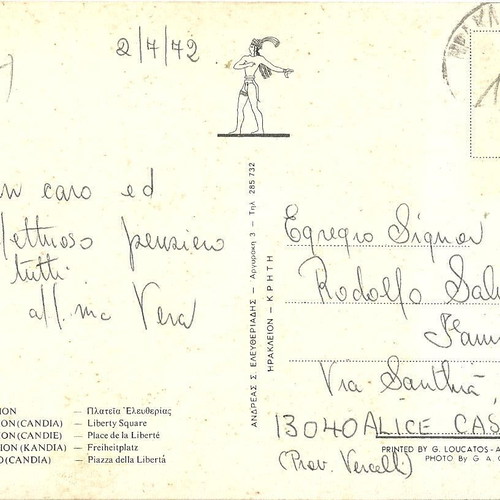 2/7/72
caro ed
pensiero
tutti
aff.ma Vera
ION — Πλατεῖα Ἐλευθερίας
ION (CANDIA) — Liberty Square
ION (CANDIE) — Place de la Liberté
ION (KANDIA) — Freiheitplatz
O (CANDIA) — Piazza della Libertá
ΑΝΔΡΕΑΣ Σ. ΕΛΕΥΘΕΡΙΑΔΗΣ — Αργυράκη 3 — Τηλ. 285 732
ΗΡΑΚΛΕΙΟΝ - ΚΡΗΤΗ
Egregio Signor
Rodolfo Sal
Via Santhià
13040 ALICE CAS
(Prov. Vercelli)
PRINTED BY G. LOUCATOS - A
PHOTO BY G. A. C